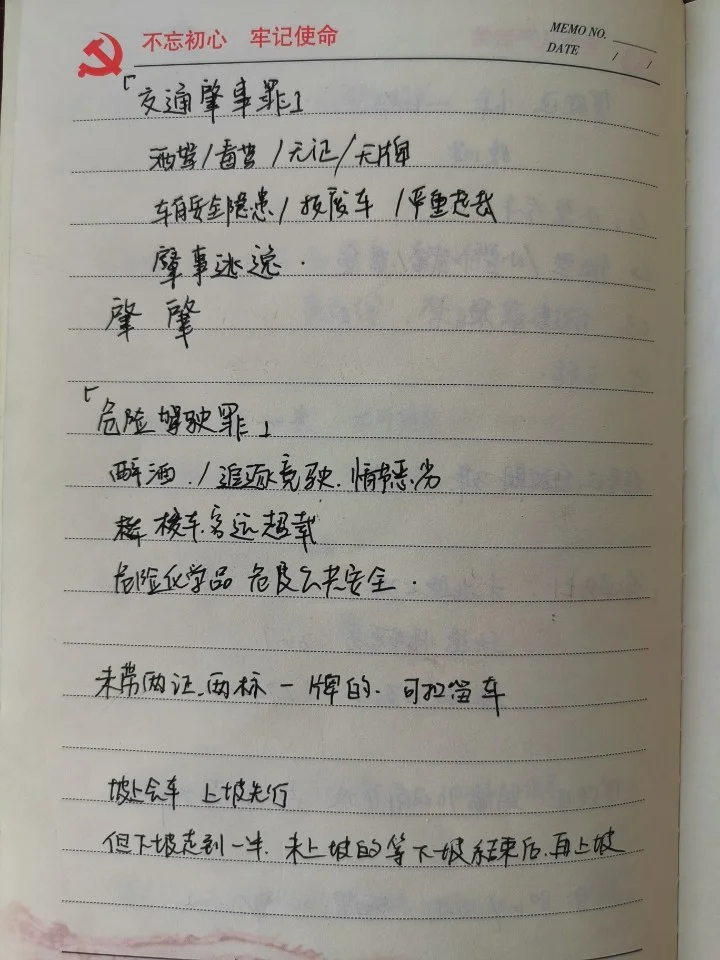 不忘初心 牢记使命
MEMO NO.
DATE / /
「交通肇事罪」
酒驾/毒驾/无证/无牌
车有安全隐患/报废车/严重超载
肇事逃逸.
肇 肇
「危险驾驶罪」
醉酒./追逐竞驶.情节恶劣
校车.客运超载
危险化学品 危及公共安全.
未带两证.两标一牌的.可扣留车
坡上会车 上坡先行
但下坡走到一半.未上坡的等下坡结束后.再上坡